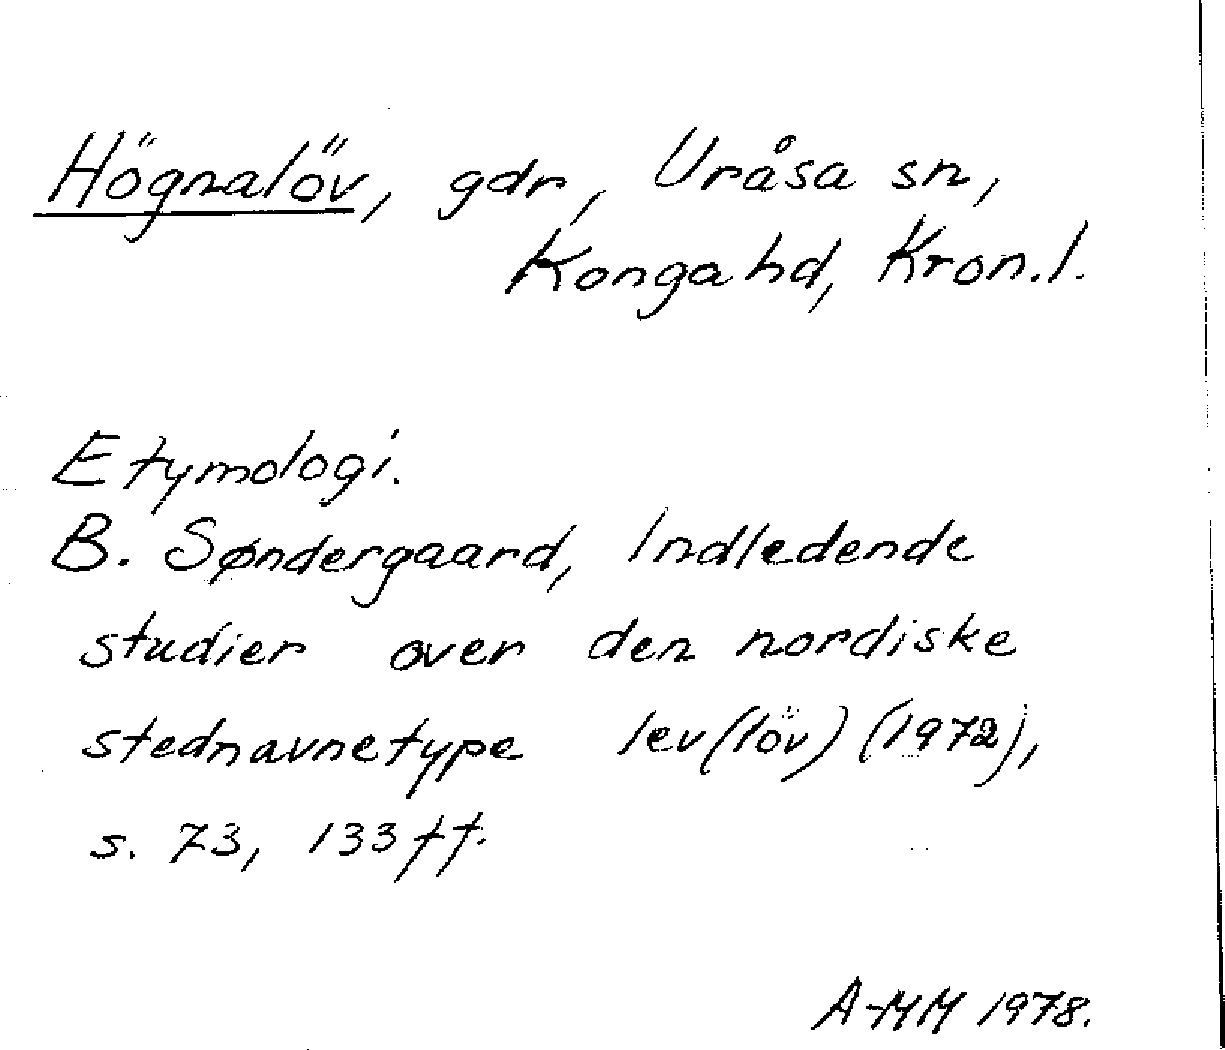 Högnalöv, gdr, Uråsa sn,
Konga hd, Kron.l.
Etymologi.
B. Søndergaard, Indledende
studier over den nordiske
stednavnetype lev(löv) (1972),
s. 73, 133 ff.
A-MM 1978.